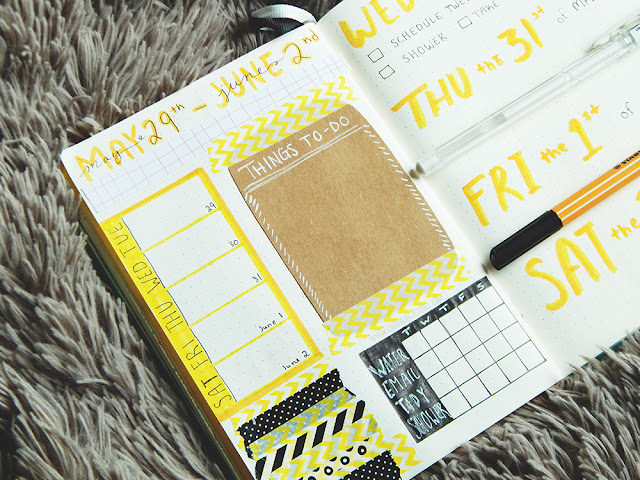 MAY 29th – JUNE 2nd
THINGS TO-DO
TUE 29
WED 30
THU 31
FRI June 1
SAT June 2
T W T F S
WATER
EMAIL
TIDY
SHOWER
WED
SCHEDULE
SHOWER TAKE
THU the 31st of MA
FRI the 1st of
SAT the